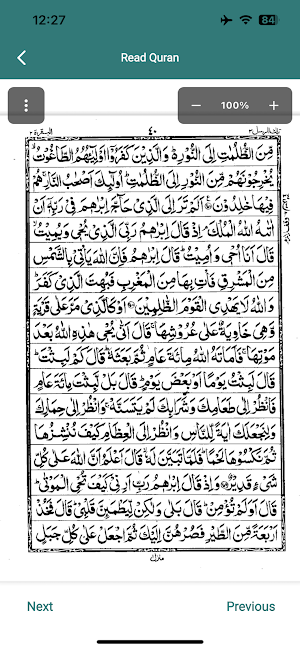 12:27
84
Read Quran
100%
البقرة ٢
٤٠
تلك الرسل ٣
مِّنَ الظُّلُمٰتِ اِلَى النُّوْرِ۬ؕ وَالَّذِيْنَ كَفَرُوْۤا اَوْلِيٰٓـُٔهُمُ الطَّاغُوْتُۙ
يُخْرِجُوْنَهُمْ مِّنَ النُّوْرِ اِلَى الظُّلُمٰتِؕ اُولٰٓئِكَ اَصْحٰبُ النَّارِۚ هُمْ
فِيْهَا خٰلِدُوْنَ۠ اَلَمْ تَرَ اِلَى الَّذِيْ حَآجَّ اِبْرٰهٖمَ فِيْ رَبِّهٖۤ اَنْ
اٰتٰىهُ اللّٰهُ الْمُلْكَۘ اِذْ قَالَ اِبْرٰهٖمُ رَبِّيَ الَّذِيْ يُحْيٖ وَيُمِيْتُۙ
قَالَ اَنَا اُحْيٖ وَاُمِيْتُؕ قَالَ اِبْرٰهٖمُ فَاِنَّ اللّٰهَ يَاْتِيْ بِالشَّمْسِ
مِنَ الْمَشْرِقِ فَاْتِ بِهَا مِنَ الْمَغْرِبِ فَبُهِتَ الَّذِيْ كَفَرَؕ
وَاللّٰهُ لَا يَهْدِي الْقَوْمَ الظّٰلِمِيْنَۚ اَوْ كَالَّذِيْ مَرَّ عَلٰى قَرْيَةٍ
وَّهِيَ خَاوِيَةٌ عَلٰى عُرُوْشِهَاۚ قَالَ اَنّٰى يُحْيٖ هٰذِهِ اللّٰهُ بَعْدَ
مَوْتِهَاۚ فَاَمَاتَهُ اللّٰهُ مِائَةَ عَامٍ ثُمَّ بَعَثَهٗؕ قَالَ كَمْ لَبِثْتَؕ
قَالَ لَبِثْتُ يَوْمًا اَوْ بَعْضَ يَوْمٍؕ قَالَ بَلْ لَّبِثْتَ مِائَةَ عَامٍ
فَانْظُرْ اِلٰى طَعَامِكَ وَشَرَابِكَ لَمْ يَتَسَنَّهْۚ وَانْظُرْ اِلٰى حِمَارِكَ
وَلِنَجْعَلَكَ اٰيَةً لِّلنَّاسِ وَانْظُرْ اِلَى الْعِظَامِ كَيْفَ نُنْشِزُهَا
ثُمَّ نَكْسُوْهَا لَحْمًاؕ فَلَمَّا تَبَيَّنَ لَهٗۙ قَالَ اَعْلَمُ اَنَّ اللّٰهَ عَلٰى كُلِّ
شَيْءٍ قَدِيْرٌ وَاِذْ قَالَ اِبْرٰهٖمُ رَبِّ اَرِنِيْ كَيْفَ تُحْيِ الْمَوْتٰىؕ
قَالَ اَوَلَمْ تُؤْمِنْؕ قَالَ بَلٰى وَلٰكِنْ لِّيَطْمَئِنَّ قَلْبِيْؕ قَالَ فَخُذْ
اَرْبَعَةً مِّنَ الطَّيْرِ فَصُرْهُنَّ اِلَيْكَ ثُمَّ اجْعَلْ عَلٰى كُلِّ جَبَلٍ
منزل
Next
Previous